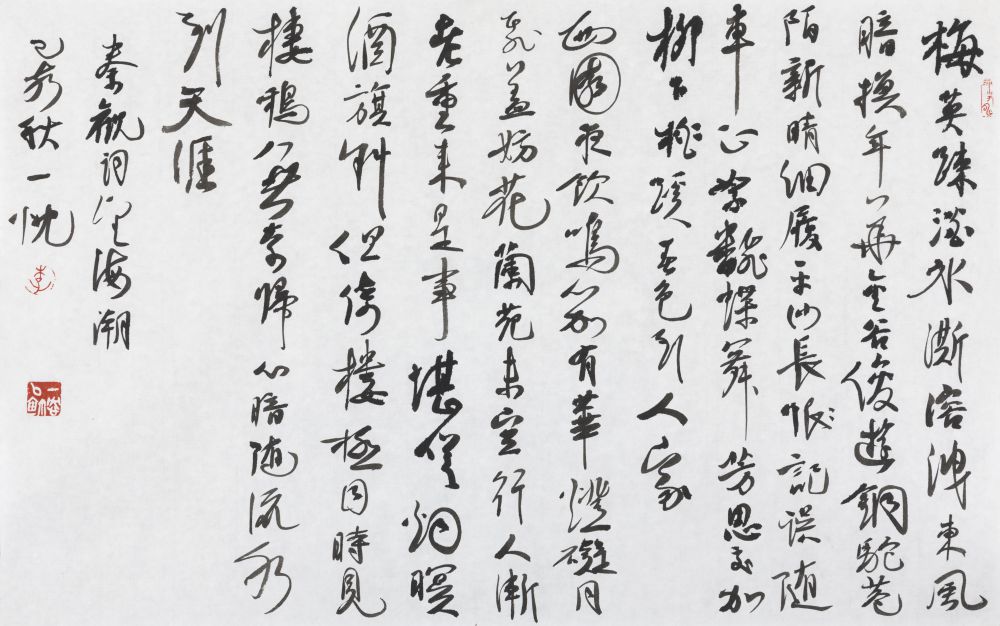 梅英疎澹冰澌溶洩東風
暗換年華金谷俊遊銅駝巷
陌新晴細履平沙長恨記誤随
車正絮翻蝶舞芳思交加
柳下桃蹊春色到人家
西園夜飲鳴笳有華燈礙月
飛蓋妨花蘭苑未空行人漸
老重來是事堪嗟烟暝
酒旗斜但倚樓極目時見
棲鴉無奈歸心暗随流水
到天涯
秦觀詞望海潮
己亥秋一忱
李